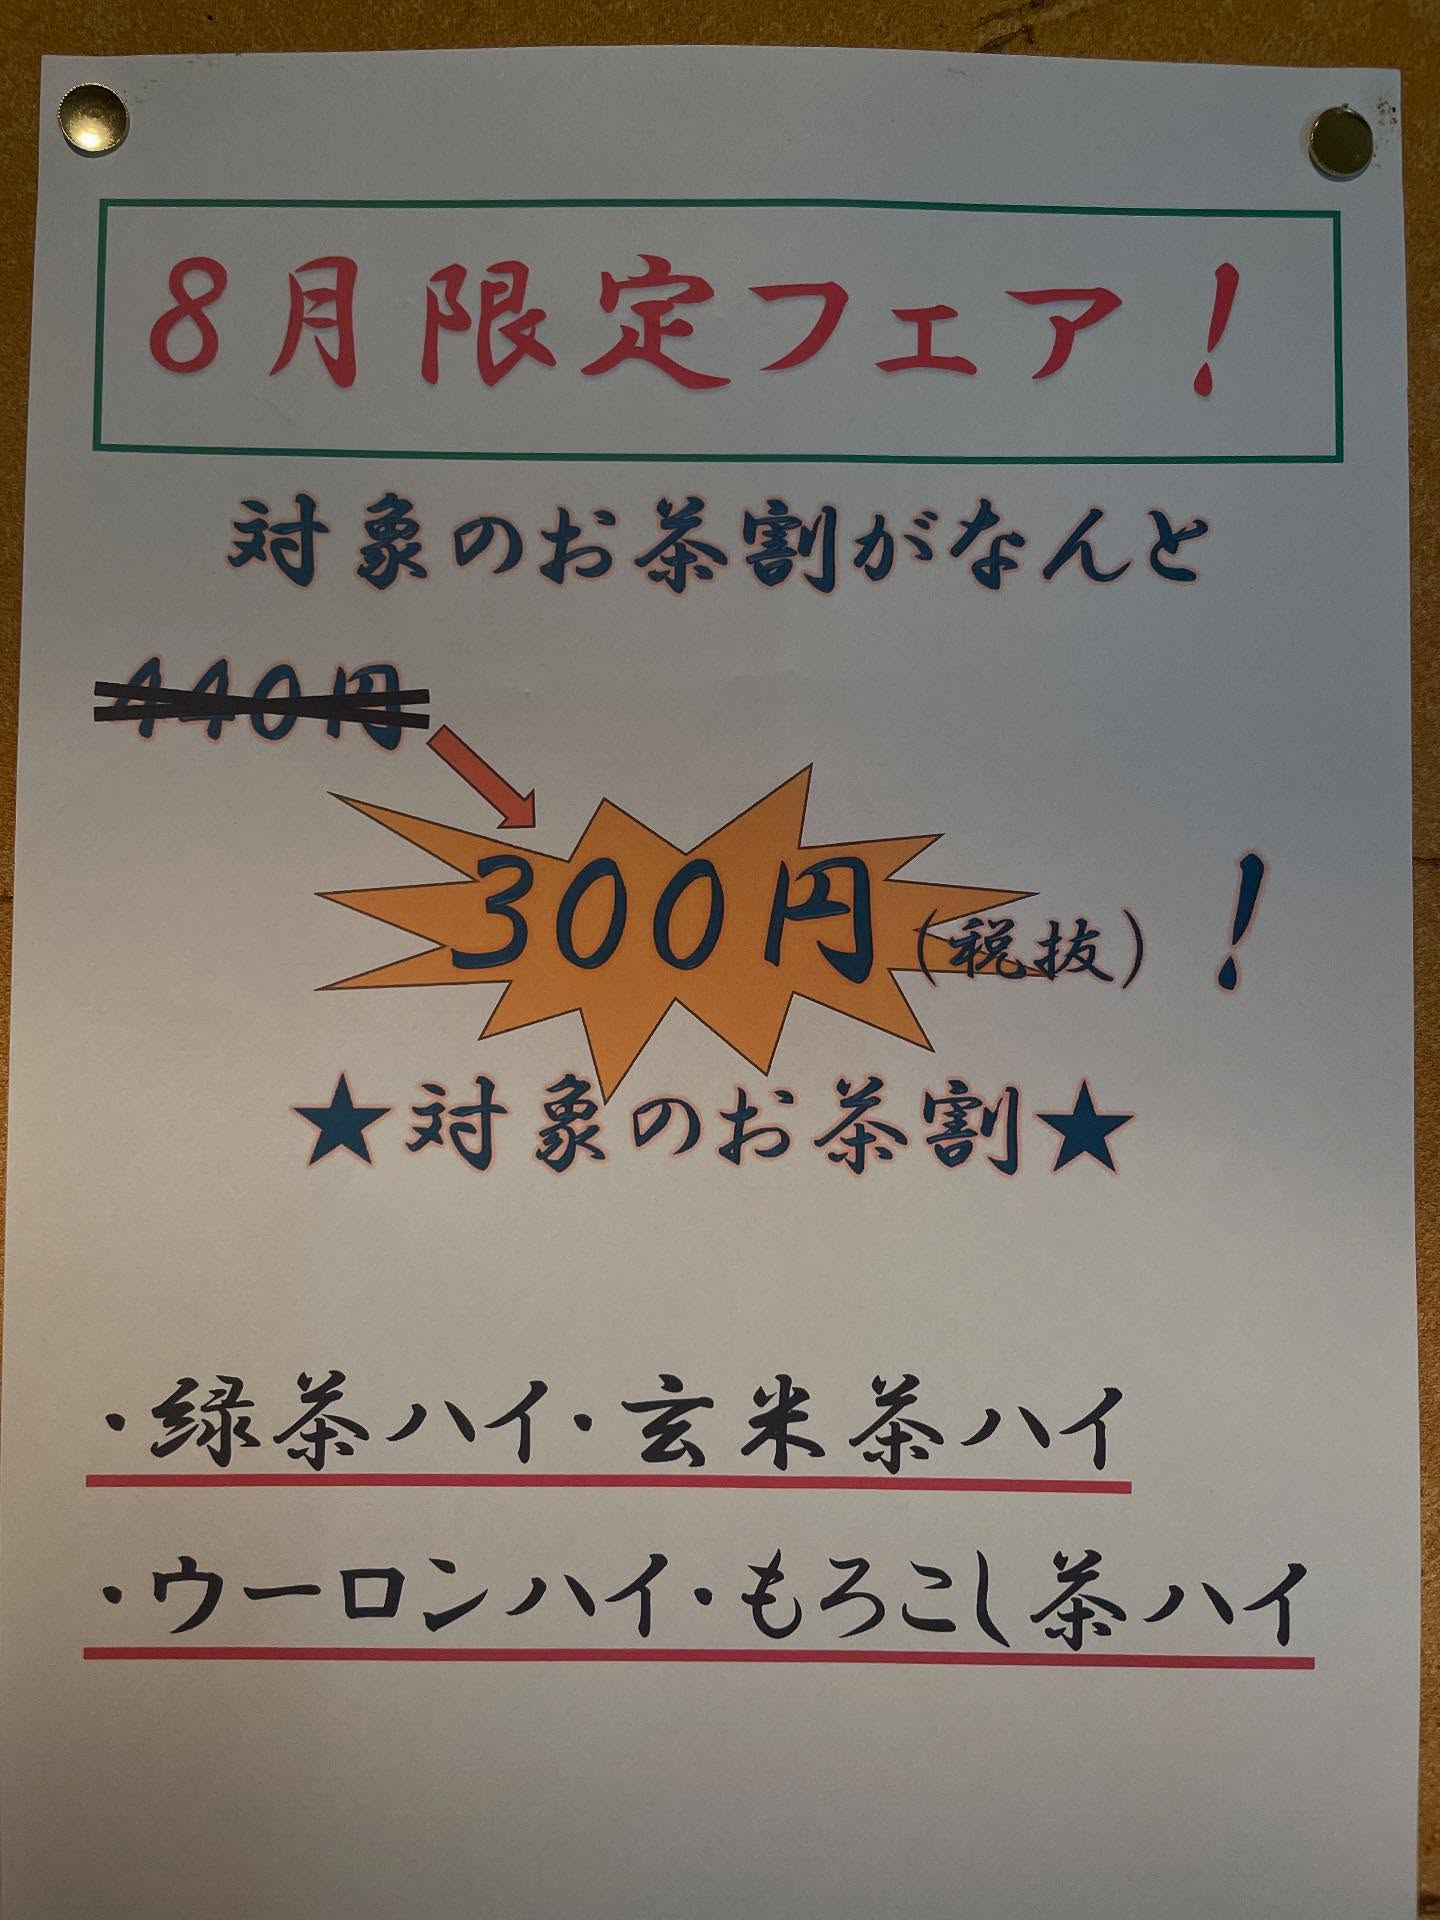 8月限定フェア！
対象のお茶割がなんと
440円
300円(税抜)！
★対象のお茶割★
・緑茶ハイ・玄米茶ハイ
・ウーロンハイ・もろこし茶ハイ